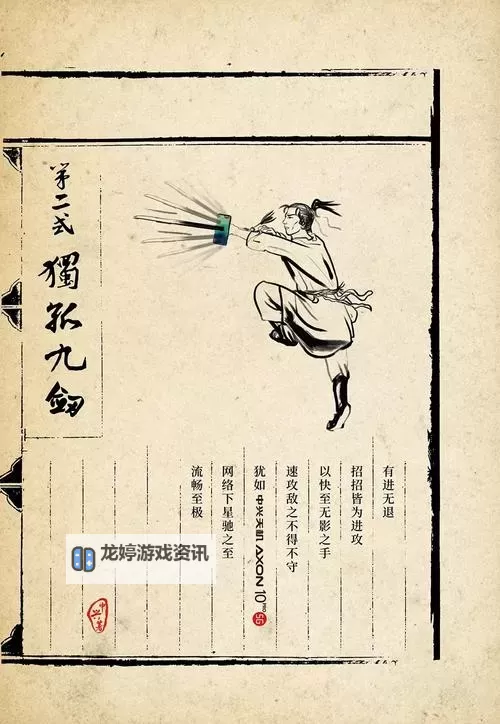 第二式
獨孤九劍
有进无退
招招皆为进攻
以快至无影之手
速攻敌之不得不守
犹如中兴天机AXON 10 PRO 5G
网络下星驰之至
流畅至极
龙婷游戏资讯